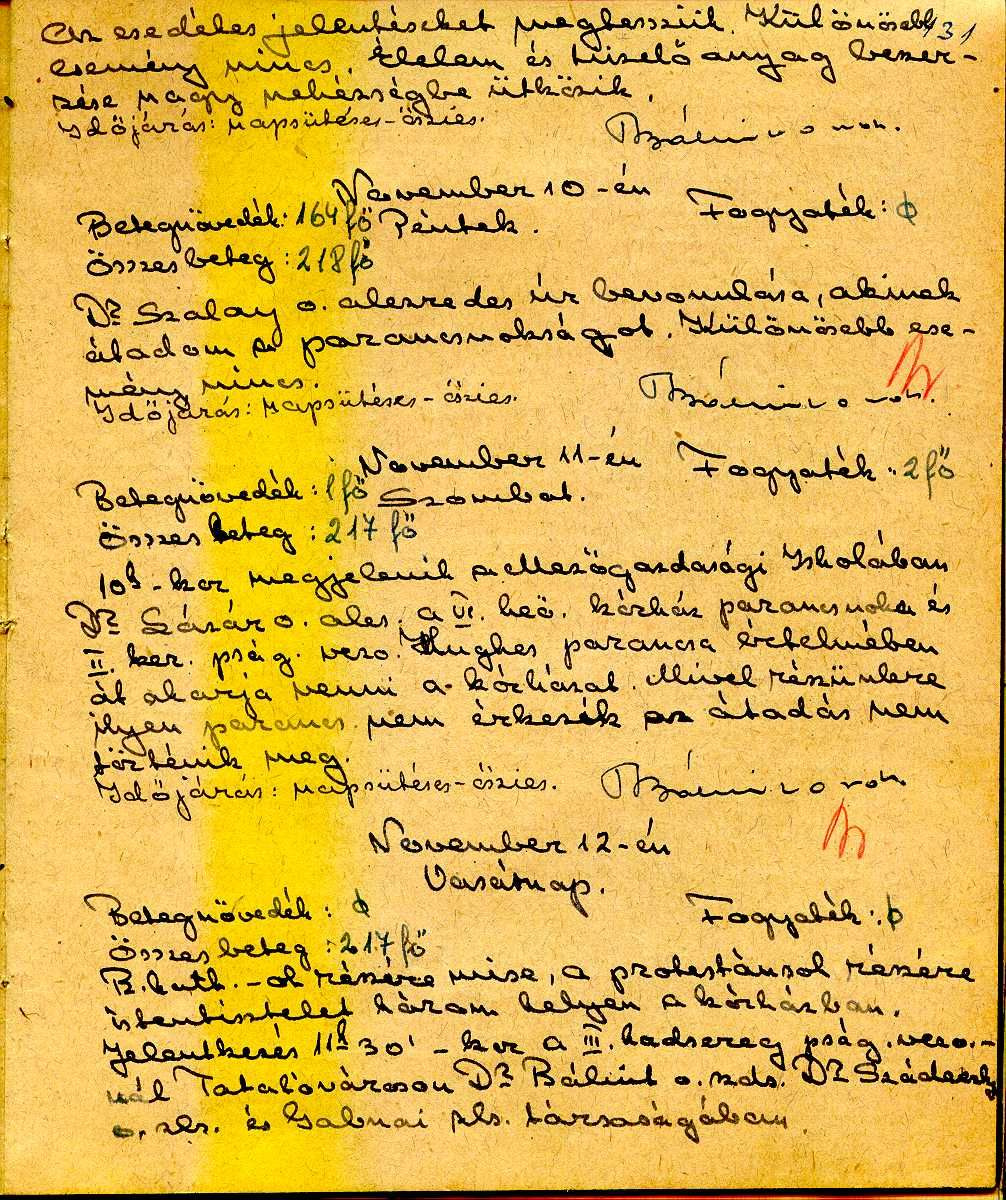 Az esedékes jelentéseket megtesszük. Különösebb 131
esemény nincs. Élelem és tüzelőanyag beszer-
zése nagy nehézségbe ütközik.
Időjárás: napsütéses-őszies.
Bálint o. szds.
November 10-én
Betegnövedék: 164 fő Péntek. Fogyaték: φ
Összes beteg: 218 fő
Dr Szalay o. alezredes úr bevonulása, akinek
átadom a parancsnokságot. Különösebb ese-
mény nincs.
Időjárás: napsütéses-őszies.
November 11-én Fogyaték: 2 fő
Betegnövedék: 1 fő Szombat.
Összes beteg: 217 fő
10h-kor megjelenik a Mezőgazdasági Iskolában
Dr Szászár o. ales. a VI. heö. kórház parancsnoka és
II. ker. pság. vezo. Hughes parancsa értelmében
át akarja venni a kórházat. Mivel részünkre
ilyen parancs nem érkezék az átadás nem
történik meg.
Időjárás: napsütéses-őszies.
November 12-én
Vasárnap.
Betegnövedék: φ Fogyaték: φ
Összes beteg: 217 fő
R. kath.-ok részére mise, a protestánsok részére
istentisztelet három helyen a kórházban.
Jelentkezés 11h 30'-kor a III. hadsereg pság. vezo.-
nál Tatatóvároson Dr Bálint o. szds. Dr Szádeczky
o. zls. és Gabnai zls. társaságában.